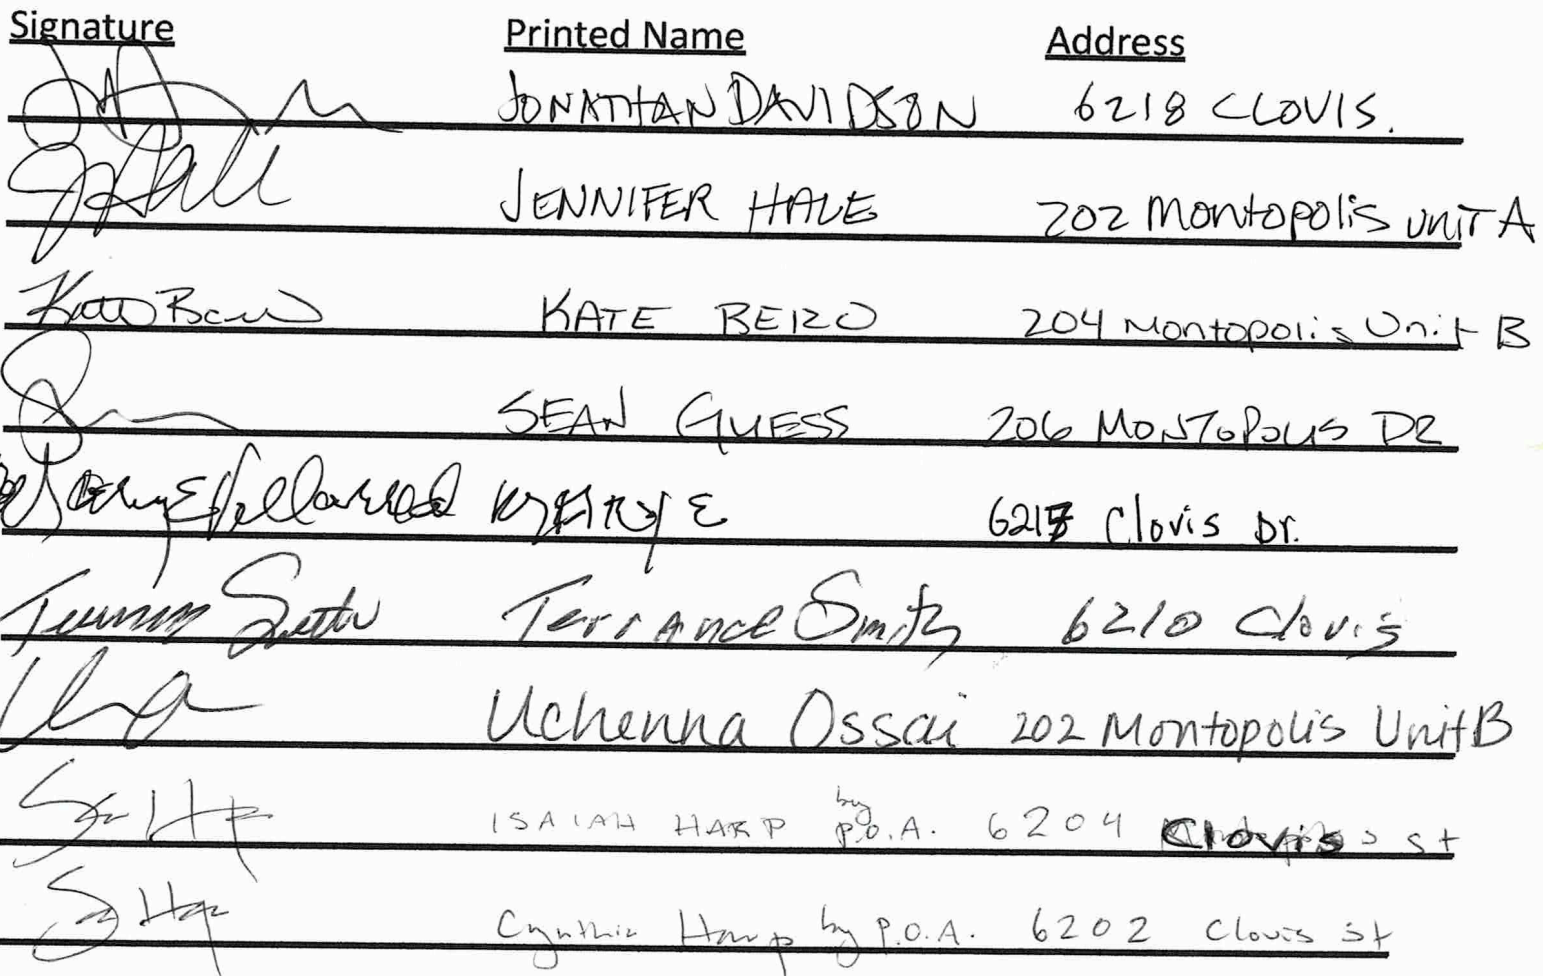 Signature Printed Name Address
JONATHAN DAVIDSON 6218 CLOVIS.
JENNIFER HALE 202 Montopolis UNIT A
KATE BEIZO 204 Montopolis Unit B
SEAN GUESS 206 MONTOPOLIS DR
E 6217 Clovis Dr.
Terrance Smith 6210 Clovis
Uchenna Ossai 202 Montopolis Unit B
ISAIAH HARP by P.O.A. 6204 Clovis St
Cynthia Harp by P.O.A. 6202 Clovis St